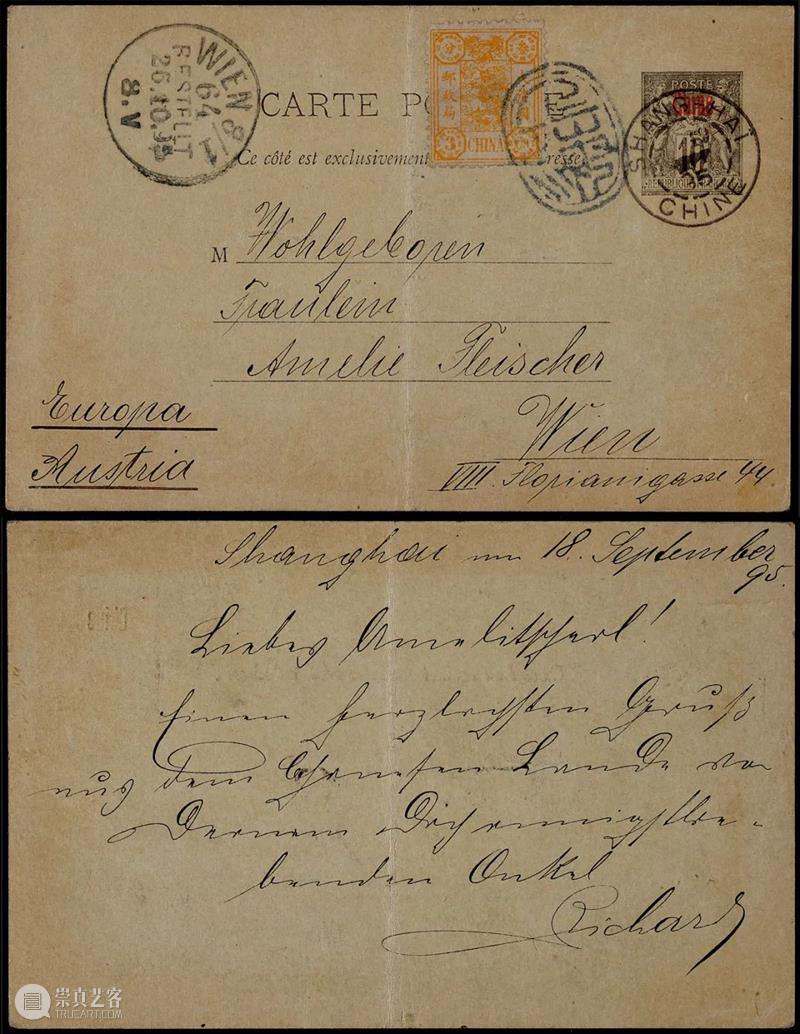 WIEN 8/1
64
BESTELLT
26.10.95
8.V
CARTE PO
Ce côté est exclusivement
resse
分
叁
郵政局
3
CHINA
POSTE
SHANG-HAÏ
CHINE
M Wohlgeboren
Fräulein
Amelie Fleischer
Wien
VIII. Florianigasse 44.
Europa
Austria
Shanghai am 18. September
95.
Liebes Amelitscherl!
Einen herzlichsten Gruß
aus dem Chinesen Lande von
Deinem Dich innigstlie-
benden Onkel
Richard
崇真艺客
WWW.TRUEART.COM